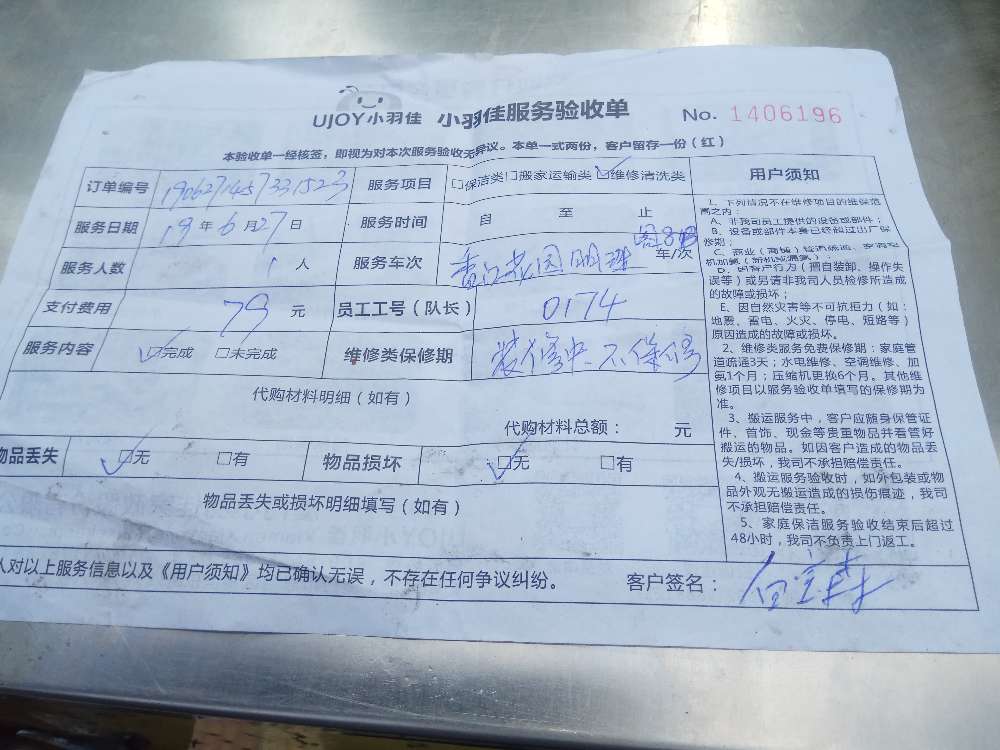 UJOY小羽佳 小羽佳服务验收单 No. 1406196
本验收单一经核签，即视为对本次服务验收无异议。本单一式两份，客户留存一份（红）
订单编号 190627145733.1523 服务项目 □保洁类 □搬家运输类 ☑维修清洗类
服务日期 19年6月27日 服务时间 自 至 止
服务人数 1人 服务车次 花园明珠 车/次
支付费用 79 元 员工工号（队长） 0174
服务内容 ☑完成 □未完成 维修类保修期 装修中 不保修
代购材料明细（如有）
代购材料总额： 元
物品丢失 ☑无 □有 物品损坏 ☑无 □有
物品丢失或损坏明细填写（如有）
人对以上服务信息以及《用户须知》均已确认无误，不存在任何争议纠纷。 客户签名：
用户须知
1、下列情况不在维修项目的维保范
围之内：
A、非我司员工提供的设备或部件；
B、设备或部件本身已经超过出厂保
修期；
D、因客户行为（擅自装卸、操作失
误等）或另请非我司人员检修所造成
的故障或损坏；
E、因自然灾害等不可抗拒力（如：
地震、雷电、火灾、停电、短路等）
原因造成的故障或损坏。
2、维修类服务免费保修期：家庭管
道疏通3天；水电维修、空调维修、加
氨1个月；压缩机更换6个月。其他维
修项目以服务验收单填写的保修期为
准。
3、搬运服务中，客户应随身保管证
件、首饰、现金等贵重物品并看管好
搬运的物品。如因客户造成的物品丢
失/损坏，我司不承担赔偿责任。
4、搬运服务验收时，如外包装或物
品外观无搬运造成的损伤痕迹，我司
不承担赔偿责任。
5、家庭保洁服务验收结束后超过
48小时，我司不负责上门返工。